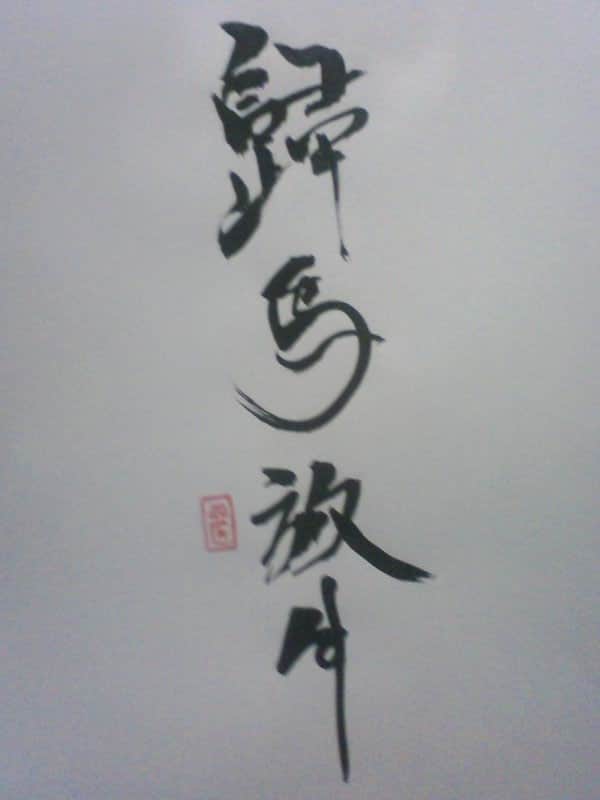 歸馬放牛